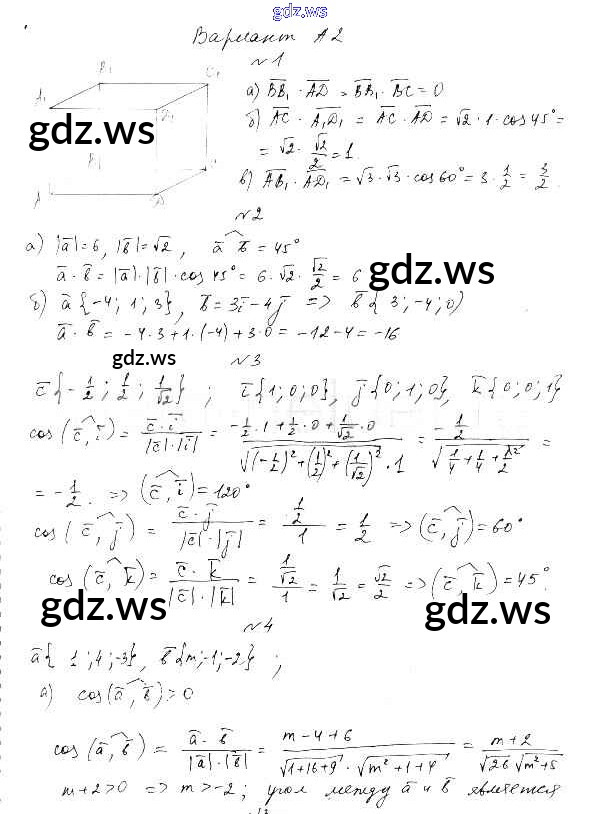 gdz.ws
Вариант А2
№1
B₁ C₁
A₁ D₁
B₁ C
A D
а) BB̅₁ · A̅D̅ = BB̅₁ · B̅C̅ = 0
б) A̅C̅ · A̅₁D̅₁ = A̅C̅ · A̅D̅ = √2 · 1 · cos 45° =
= √2 · √2/2 = 1.
в) A̅B̅₁ · A̅D̅₁ = √3 · √3 · cos 60° = 3 · 1/2 = 3/2.
gdz.ws
№2
а) |a̅| = 6, |b̅| = √2, a̅ b̅ = 45°
a̅ · b̅ = |a̅| · |b̅| · cos 45° = 6 · √2 · √2/2 = 6
gdz.ws
б) a̅ {-4; 1; 3}, b̅ = 3i̅ - 4j̅ => b̅ {3; -4; 0}
a̅ · b̅ = -4 · 3 + 1 · (-4) + 3 · 0 = -12 - 4 = -16
gdz.ws
№3
c̅ {-1/2; 1/2; 1/√2}; i̅ {1; 0; 0}, j̅ {0; 1; 0}, k̅ {0; 0; 1}
cos(c̅, i̅) = c̅ · i̅ / |c̅| · |i̅| = (-1/2 · 1 + 1/2 · 0 + 1/√2 · 0) / (√((-1/2)² + (1/2)² + (1/√2)²) · 1) = (-1/2) / √(1/4 + 1/4 + 1/2) =
= -1/2. => (c̅, i̅) = 120°
cos(c̅, j̅) = c̅ · j̅ / |c̅| · |j̅| = (1/2) / 1 = 1/2 => (c̅, j̅) = 60°
cos(c̅, k̅) = c̅ · k̅ / |c̅| · |k̅| = (1/√2) / 1 = 1/√2 = √2/2 => (c̅, k̅) = 45°.
gdz.ws gdz.ws
№4
a̅ {1; 4; -3}, b̅ {m; -1; -2};
а) cos(a̅, b̅) > 0
cos(a̅, b̅) = a̅ · b̅ / |a̅| · |b̅| = (m - 4 + 6) / (√(1 + 16 + 9) · √(m² + 1 + 4)) = (m + 2) / (√26 √(m² + 5))
m + 2 > 0 => m > -2; угол между a̅ и b̅ является